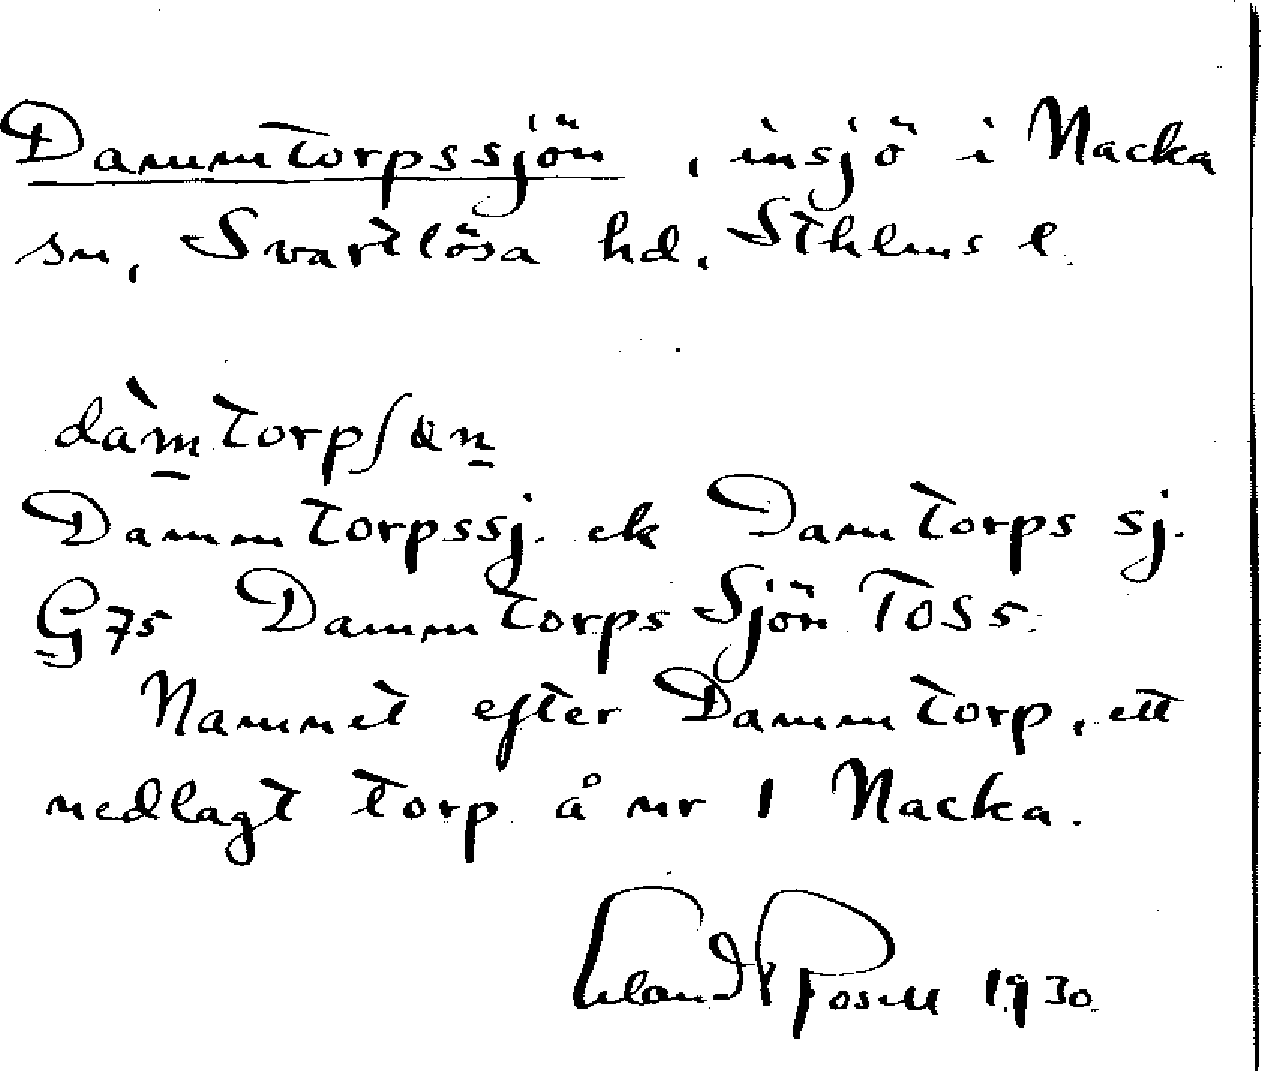 Dammtorpssjön, insjö i Nacka
sn, Svartlösa hd, Sthlms l.
dàm̲torpʃɷn̲
Dammtorpssj. ek Damtorps sj.
G75 Dammtorps Sjön TOSS.
Namnet efter Dammtorp, ett
nedlagt torp å nr 1 Nacka.
Erland Rosell 1930